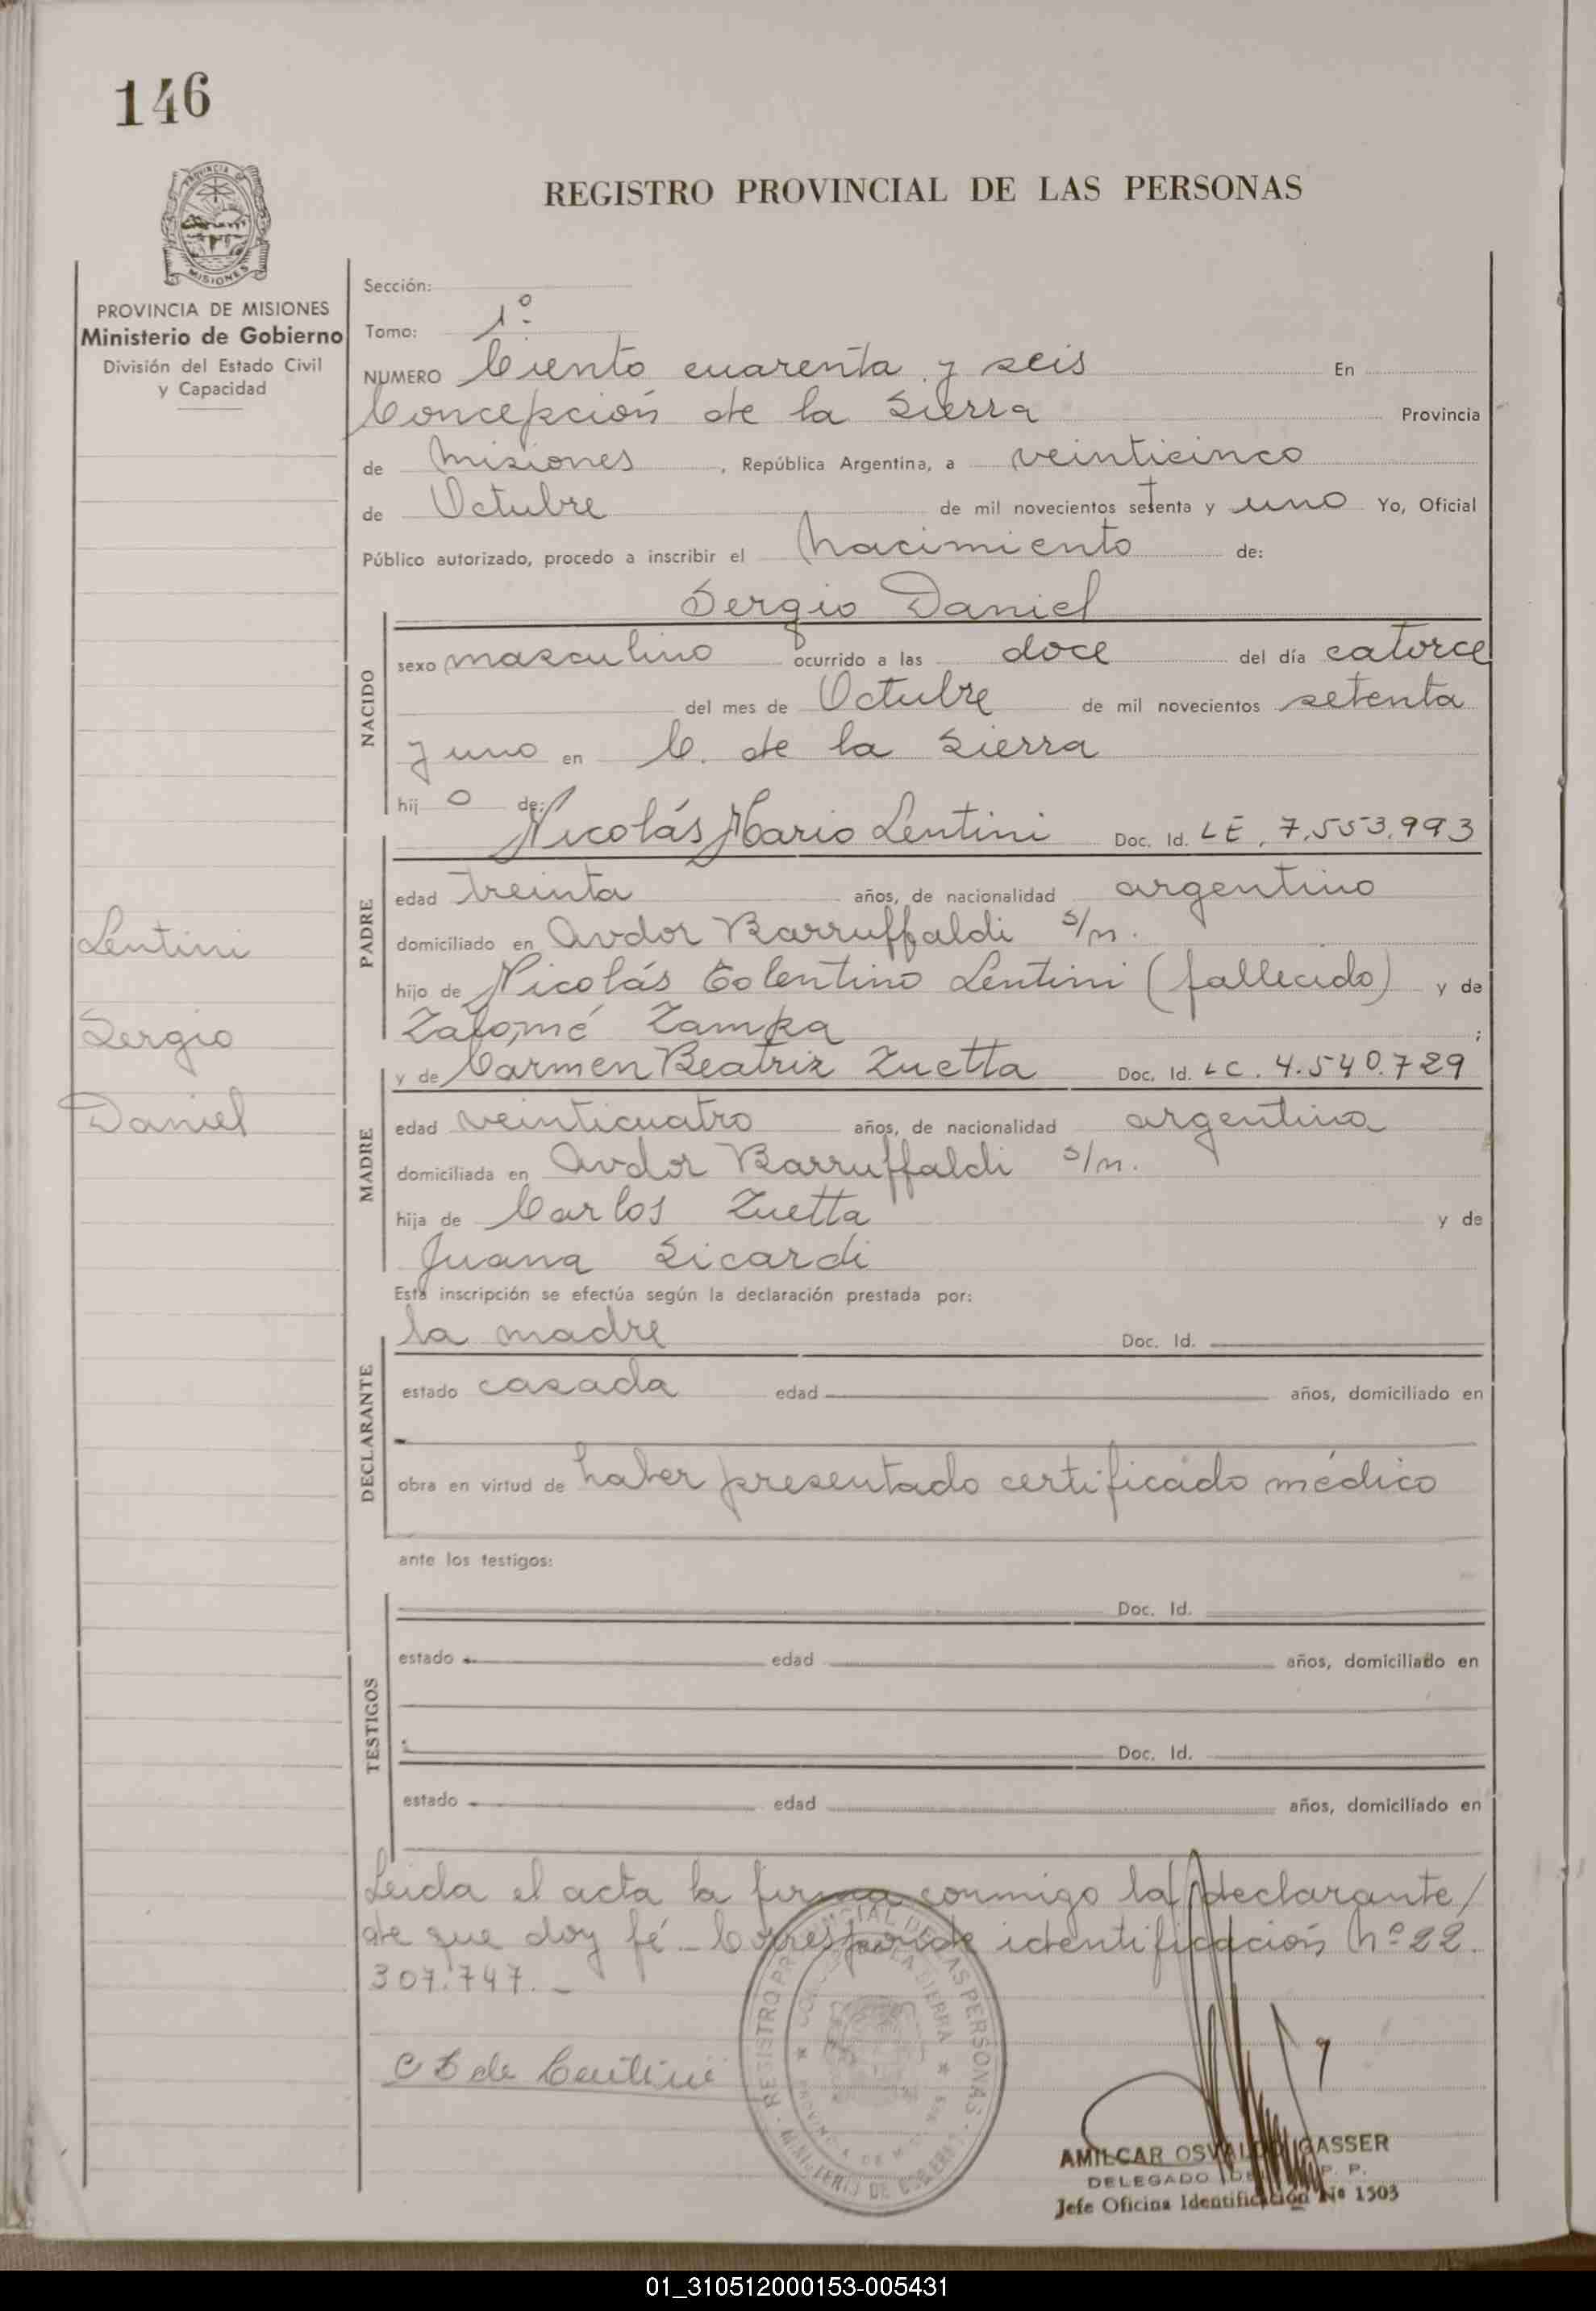 146
REGISTRO PROVINCIAL DE LAS PERSONAS
PROVINCIA
MISIONES
PROVINCIA DE MISIONES
Ministerio de Gobierno
División del Estado Civil
y Capacidad
Sección:
Tomo: 1º
NUMERO Ciento cuarenta y seis En
Concepción de la Sierra Provincia
de Misiones, República Argentina, a veinticinco
de Octubre de mil novecientos setenta y uno Yo, Oficial
Público autorizado, procedo a inscribir el Nacimiento de:
Sergio Daniel
NACIDO
sexo masculino ocurrido a las doce del día catorce
del mes de Octubre de mil novecientos setenta
y uno en C. de la Sierra
hij o de:
Nicolás Mario Lentini Doc. Id. LE. 7.553.993
PADRE
edad treinta años, de nacionalidad argentino
domiciliado en Avdor Barruffaldi s/n.
hijo de Nicolás Tolentino Lentini (fallecido) y de
Zalomé Zampa ;
y de Carmen Beatriz Zuetta Doc. Id. LC. 4.540.729
MADRE
edad veinticuatro años, de nacionalidad argentina
domiciliada en Avdor Barruffaldi s/n.
hija de Carlos Zuetta y de
Juana Sicardi
Lentini
Sergio
Daniel
Esta inscripción se efectúa según la declaración prestada por:
DECLARANTE
la madre Doc. Id.
estado casada edad años, domiciliado en
obra en virtud de haber presentado certificado médico
ante los testigos:
TESTIGOS
Doc. Id.
estado edad años, domiciliado en
Doc. Id.
estado edad años, domiciliado en
Leida el acta la firma conmigo la declarante/
de que doy fé. Corresponde identificación Nº 22.
307.747.
REGISTRO PROVINCIAL DE LAS PERSONAS
MINISTERIO DE GOBIERNO
C B de Lentini
AMILCAR OSVALDO GASSER
DELEGADO DEL R. P. P.
Jefe Oficina Identificación Nº 1503
01_310512000153-005431